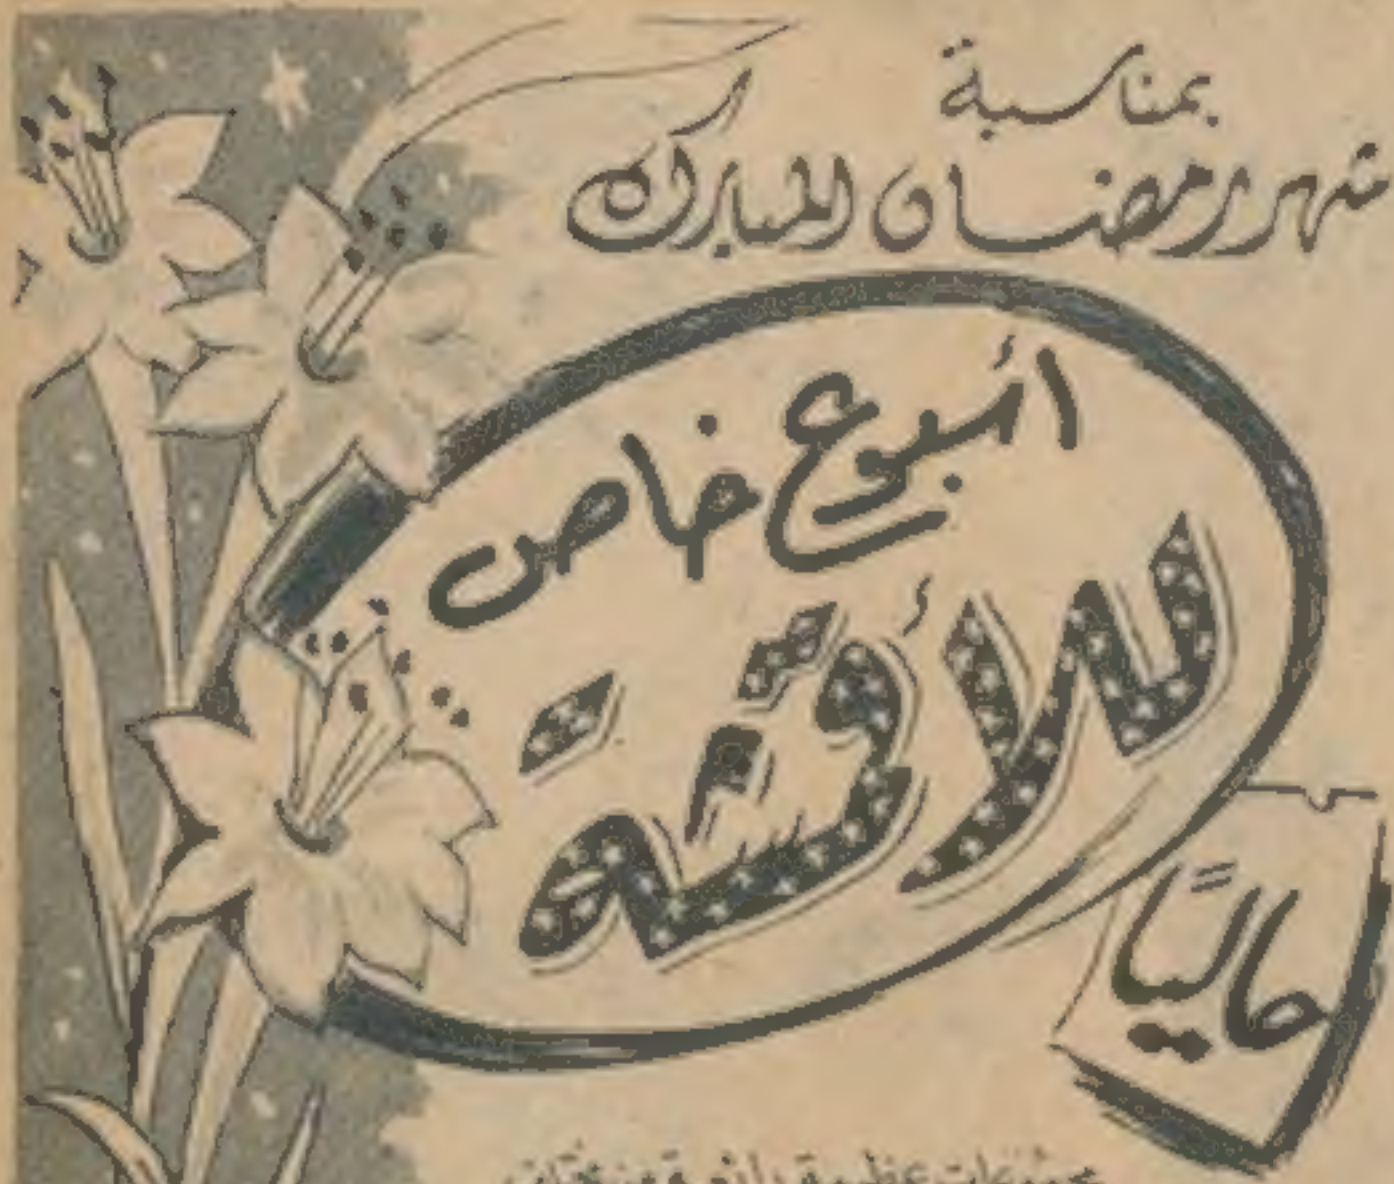 بمناسبة
شهر رمضان المبارك
أسبوع خاص
للأقمشة
حاليًا